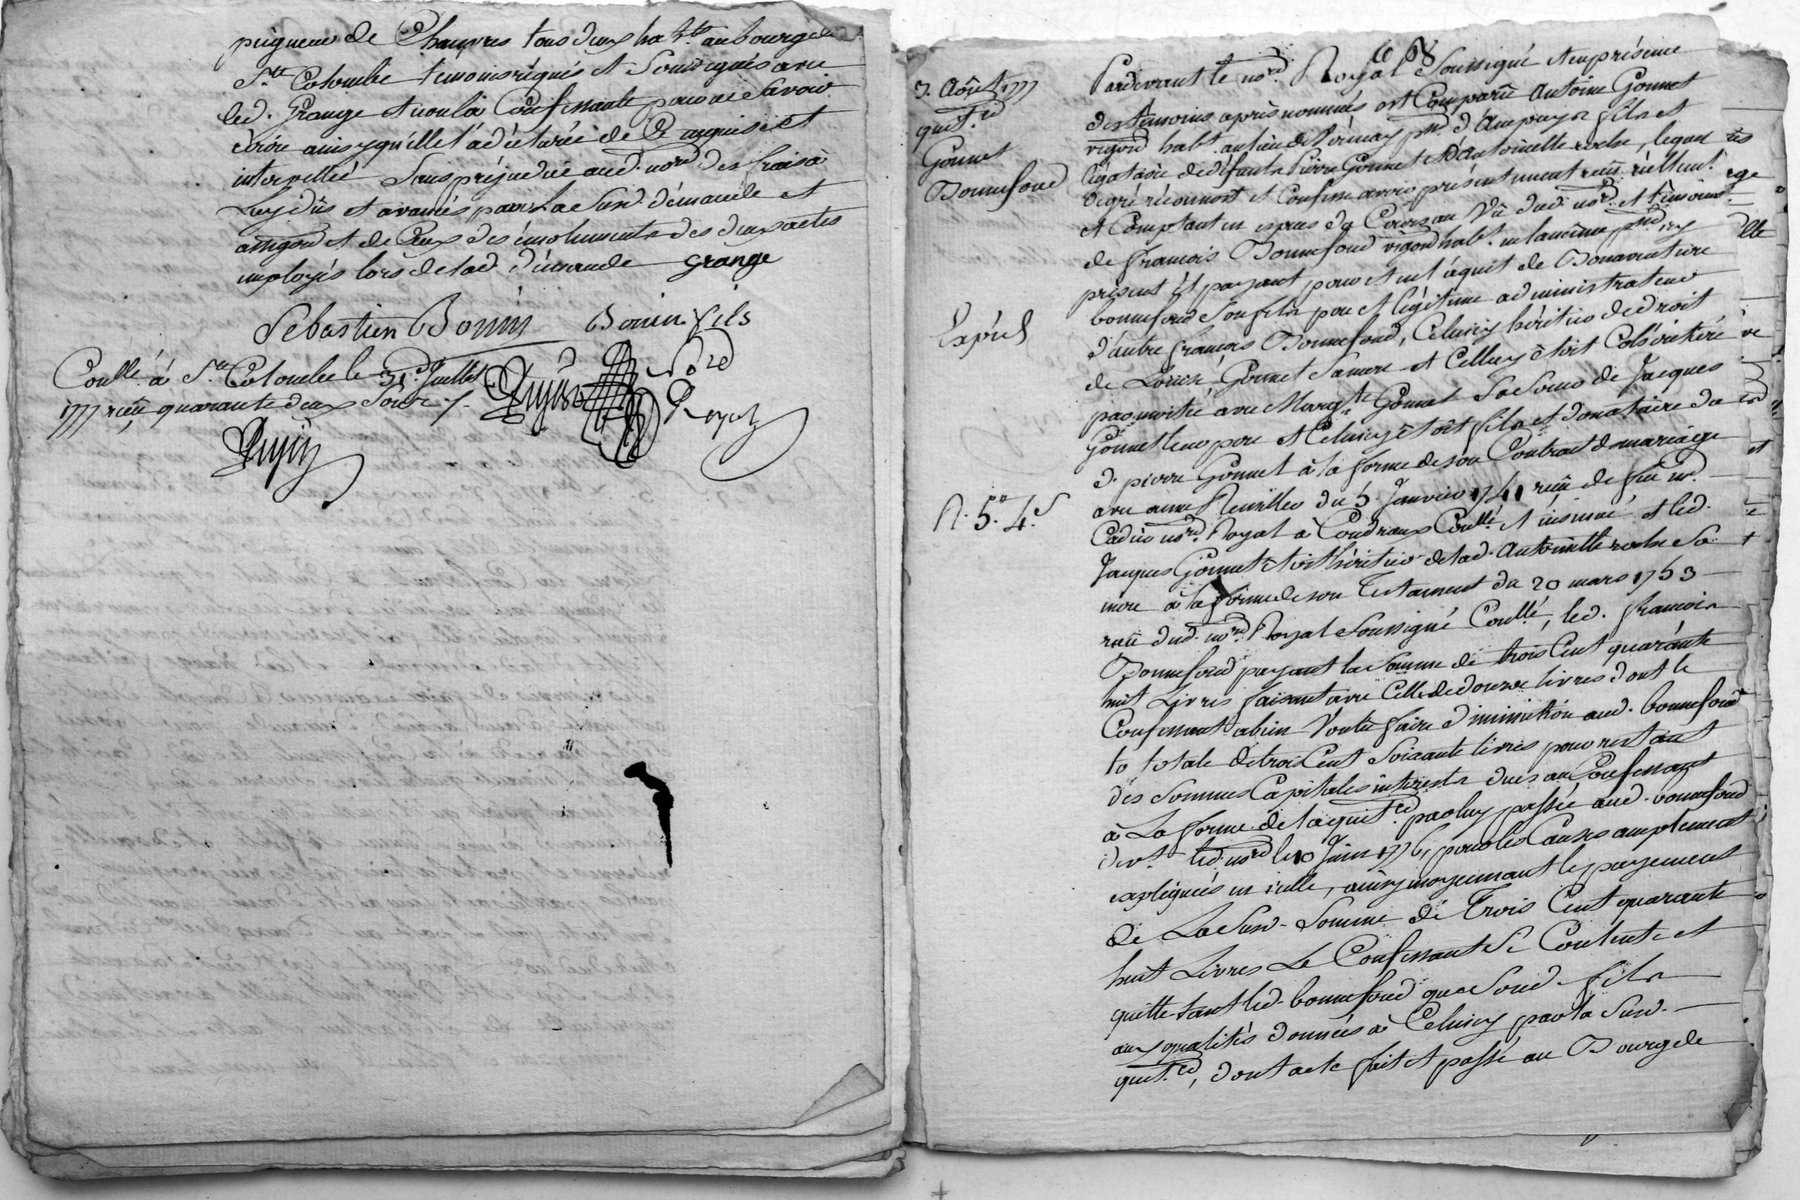 peigneur de Chanvres tous deux habts. au bourg de
Ste Colombe temoins réquis et Soussignés avec
led. Grange et non la Confessante pour ne Savoir
écrire ainsy qu'elle l'a déclaré de ce enquise et
interpellée Sans préjudice aud. nore des frais à
Luy dûs et avancés pour La Susd. démande et
et de Ceux des émoluments des deux actes
employés lors de lad. démande grange
Sebastien Bonin Bonin fils
nore
Royal
Conllé à Ste Colombe le 31e Juillet
1777 reçu quarante deux Sous
3. Août 1777
quitce
Gonnet
Bonnefond
Expéd
R. 5# 4s
Pardevant le nore Royal Soussigné et en présence
des temoins après nommés est Comparû Antoine Gonnet
vigon habt. au lieu de psse d'Ampuys fils et
légataire de défunts Pierre Gonnet et d'Antoinette roche, lequel
de gré réconnoit et Confesse avoir présentement reçû réellemt.
et Comptant en espèces de Cours au Vû dud. nore. et témoins
de françois Bonnefond vigon habt. en la même psse icy
présent et payant pour et en l'aquit de Bonaventure
bonnefond Son fils père et légitime administrateur
d'autre françois Bonnefond, Celuicy héritier de droit
de Gonnet Sa mere et Celle cy étoit Cohéritière
par moitié avec Margte Gonnet Sa Soeur de Jacques
Gonnet leur pere et Celuicy étoit fils et donataire du
d. pierre Gonnet à la forme de son Contrat de mariage
avec anne du 5 Janvier 1741 reçu de feu me.
Cadier nore. Royal à Condrieux Conllé et insinué et led.
Jacques Gonnet étoit héritier de lad. Antoinette roche Sa
mere à la forme de son Testament du 20 mars 1753
reçu dud. nore. Royal Soussigné Conllé, led. françois
Bonnefond payant la Somme de trois Cent quarante
huit Livres faisant avec Celle de douze livres dont le
Confessant a bien Voulu faire diminution aud. bonnefond
la totale de trois Cent Soixante livres pour restant
des Sommes Capitales interests dues au Confessant
à La forme de la quitce par luy passée aud. bonnefond
devt. led. nore le 10 Juin 1776, pour les Causes amplement
expliquées en icelle, ainsy moyennant le payement
de La Susd. Somme de Trois Cent quarante
huit Livres Le Confessant Se Contente et
quitte tant led. bonnefond que Sond. fils
aux qualités données à Celuicy par la Susd.
quitce, dont acte fait et passé au Bourg de